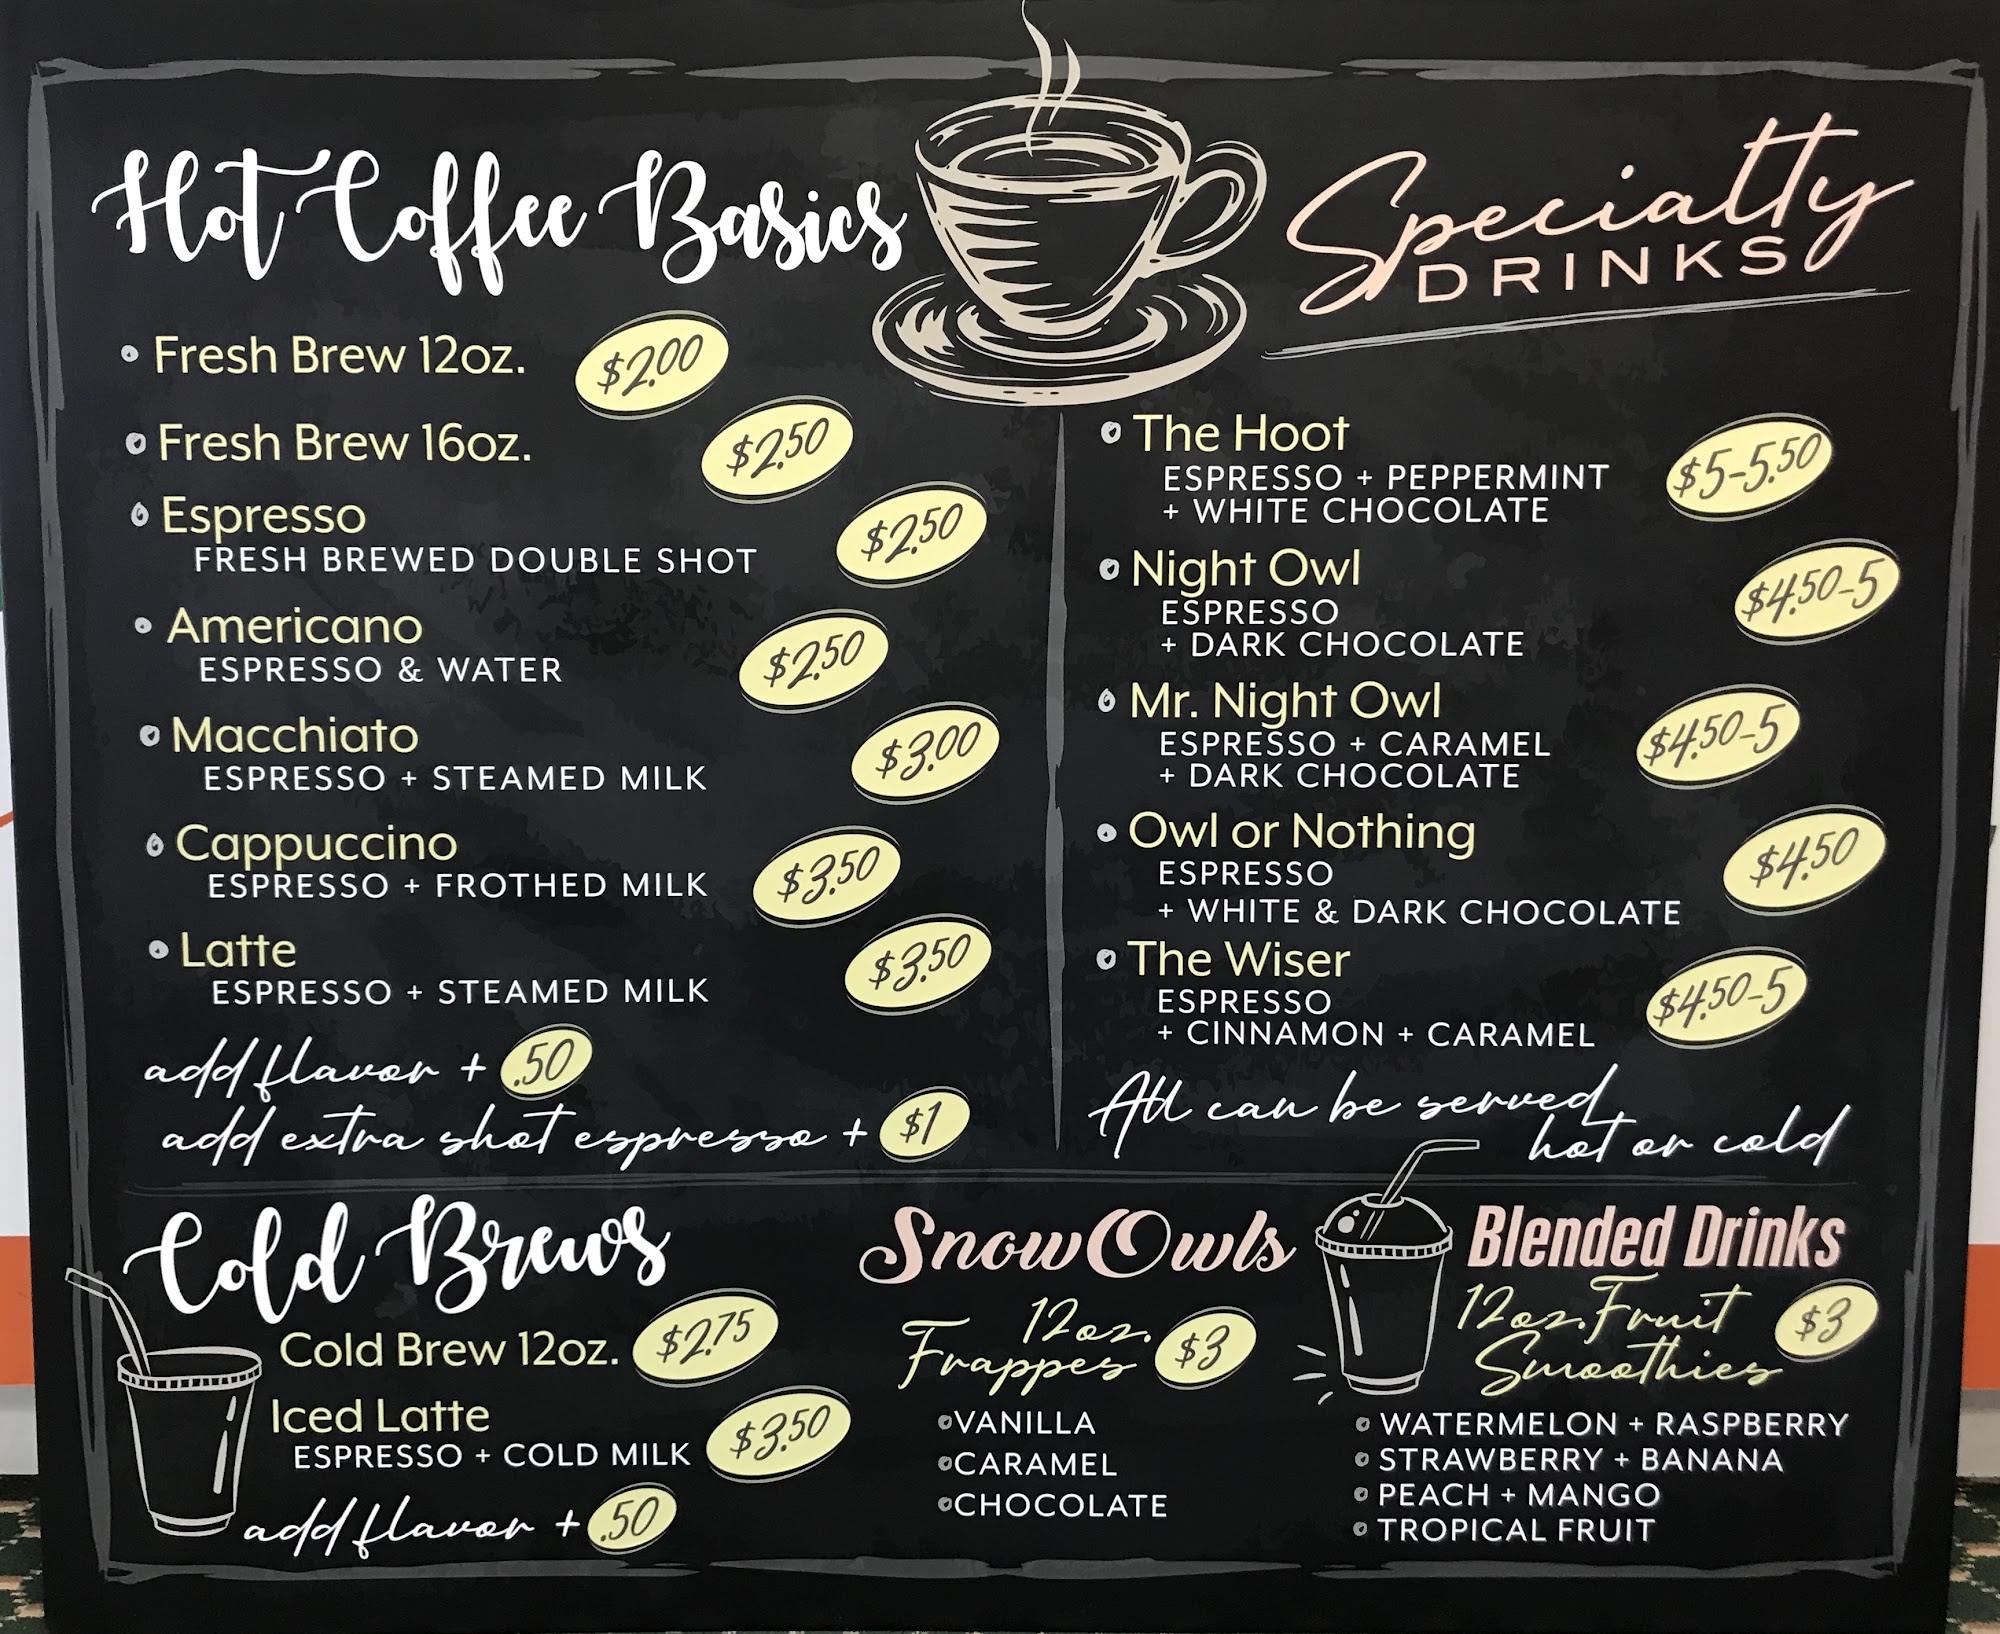 Hot Coffee Basics
Fresh Brew 12oz. $2.00
Fresh Brew 16oz. $2.50
Espresso $2.50
FRESH BREWED DOUBLE SHOT
Americano $2.50
ESPRESSO & WATER
Macchiato $3.00
ESPRESSO + STEAMED MILK
Cappuccino $3.50
ESPRESSO + FROTHED MILK
Latte $3.50
ESPRESSO + STEAMED MILK
add flavor + .50
add extra shot espresso + $1
Specialty
DRINKS
The Hoot $5-5.50
ESPRESSO + PEPPERMINT
+ WHITE CHOCOLATE
Night Owl $4.50-5
ESPRESSO
+ DARK CHOCOLATE
Mr. Night Owl $4.50-5
ESPRESSO + CARAMEL
+ DARK CHOCOLATE
Owl or Nothing $4.50
ESPRESSO
+ WHITE & DARK CHOCOLATE
The Wiser $4.50-5
ESPRESSO
+ CINNAMON + CARAMEL
All can be served
hot or cold
Cold Brews
Cold Brew 12oz. $2.75
Iced Latte $3.50
ESPRESSO + COLD MILK
add flavor + .50
Snow Owls
12oz.
Frappes $3
VANILLA
CARAMEL
CHOCOLATE
Blended Drinks
12oz. Fruit
Smoothies $3
WATERMELON + RASPBERRY
STRAWBERRY + BANANA
PEACH + MANGO
TROPICAL FRUIT